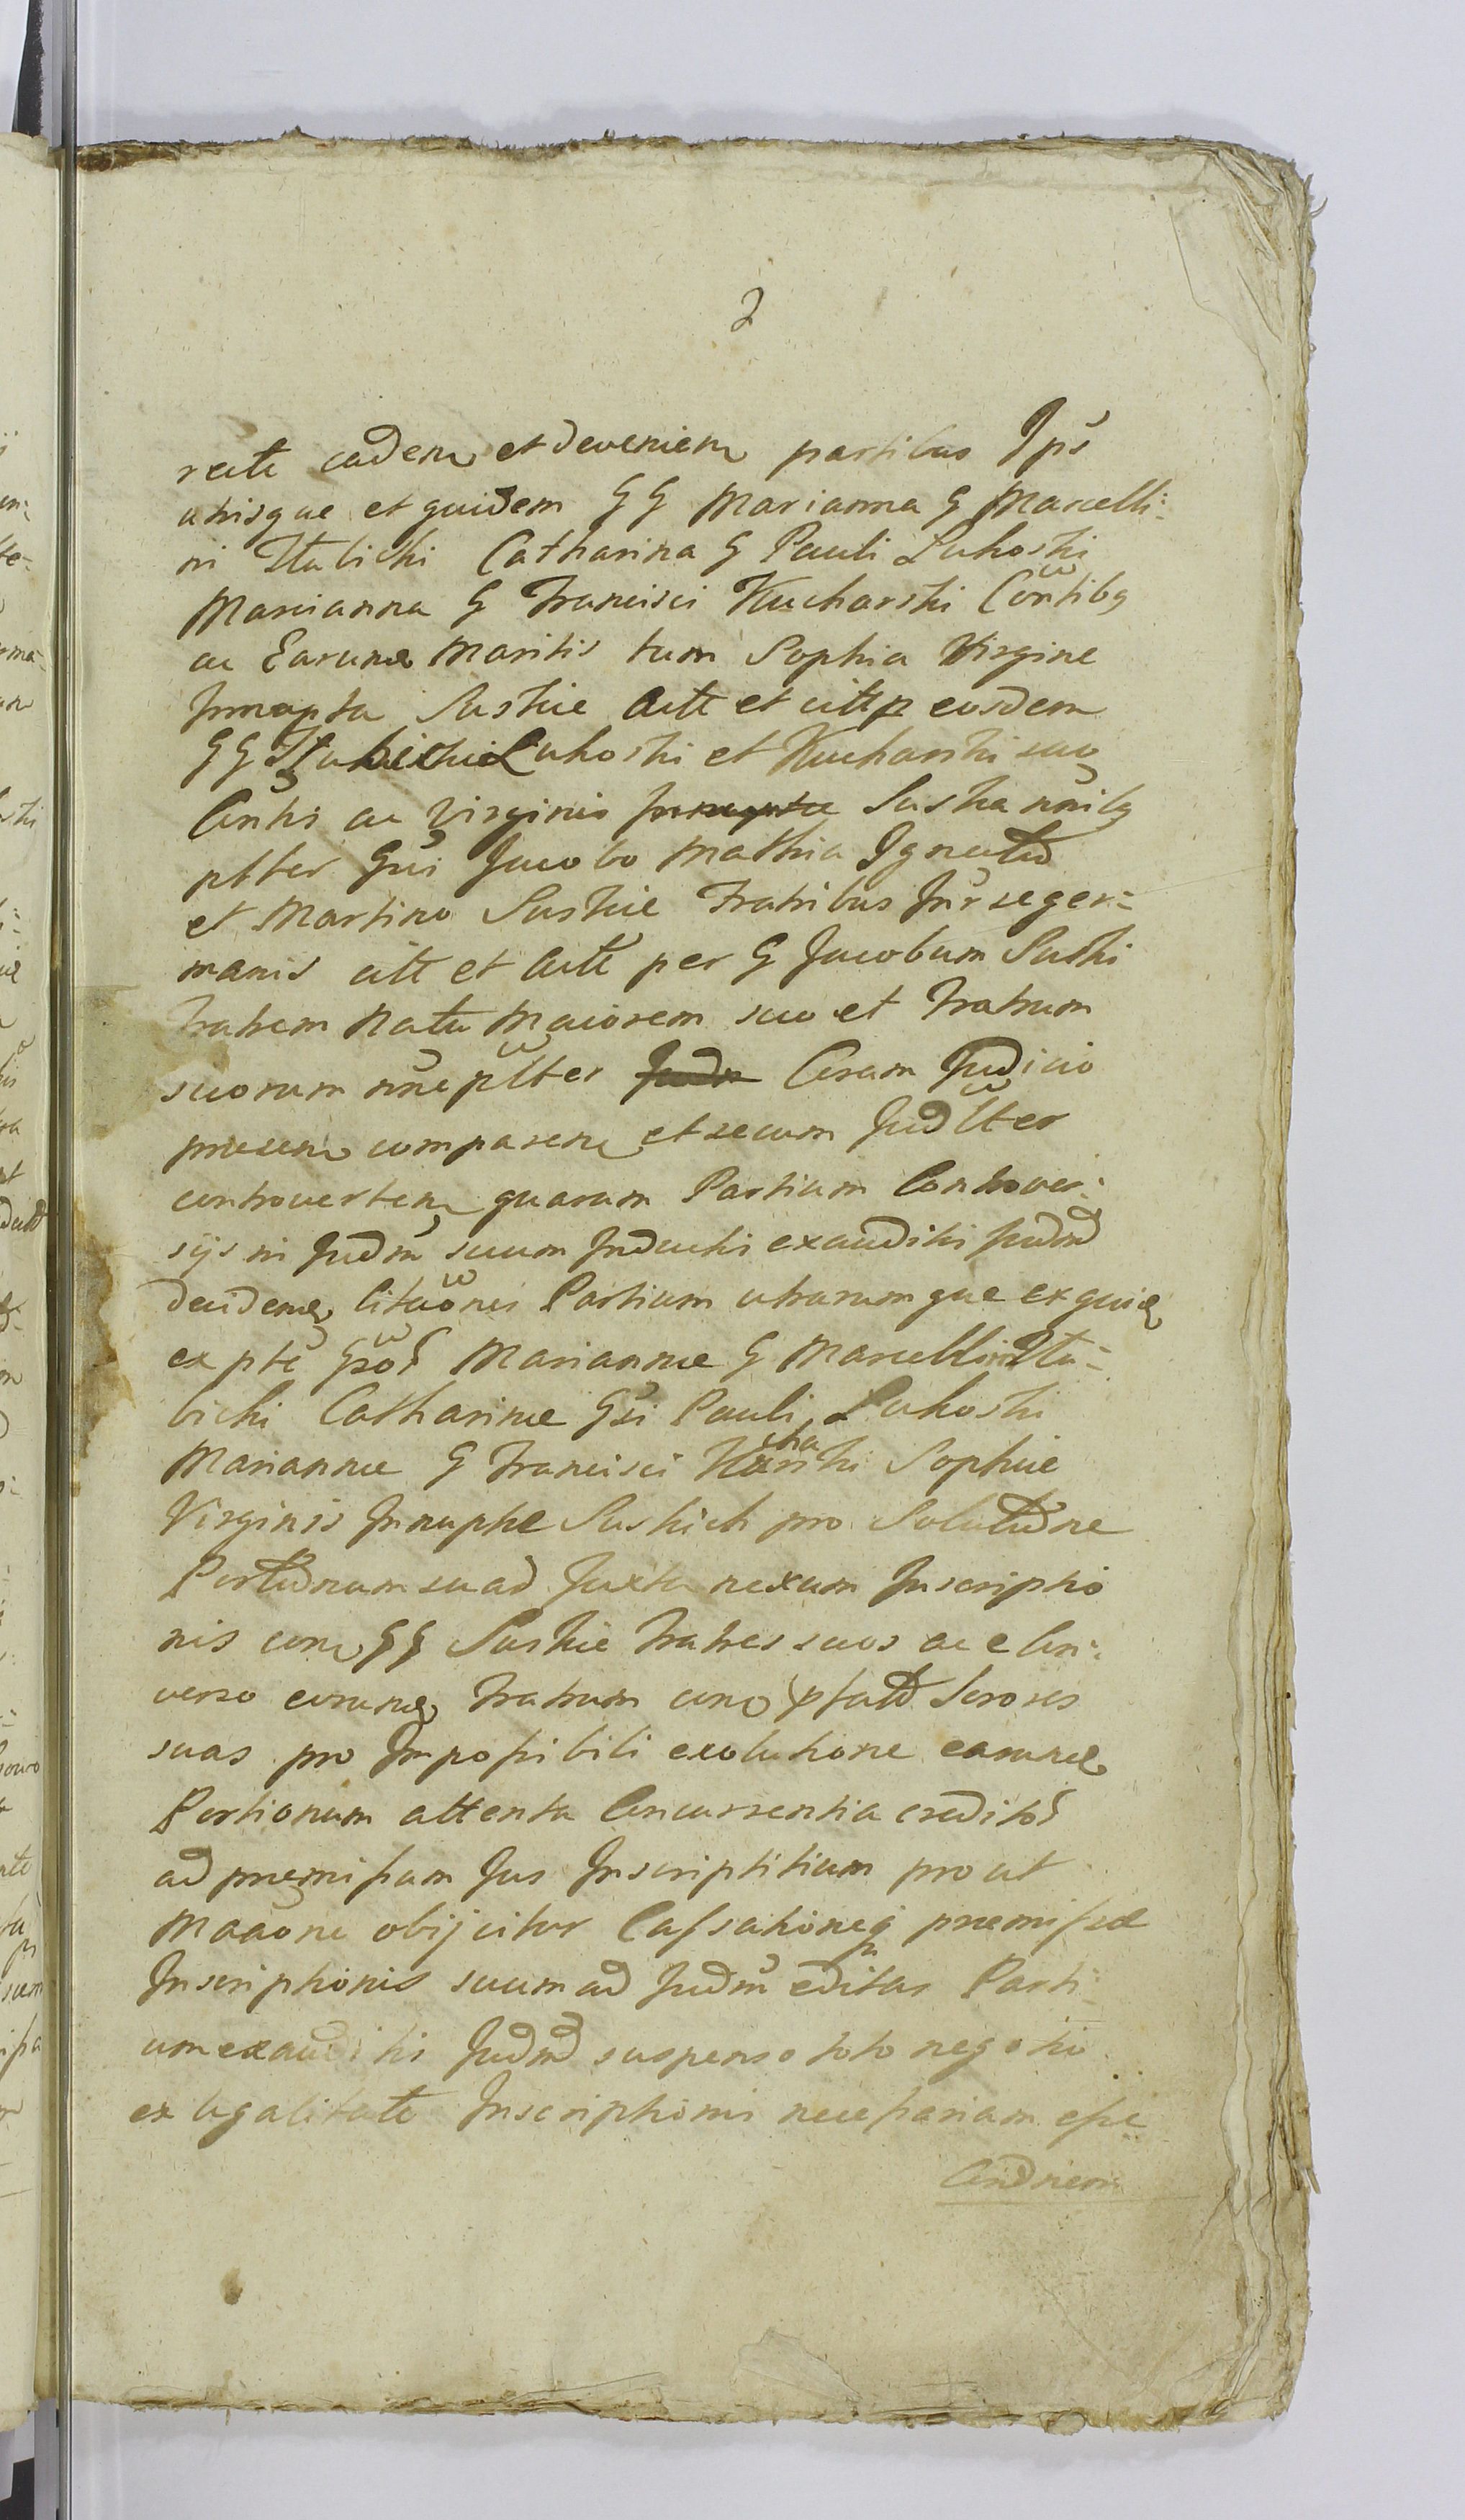 2
recte cadem et deveniem partibus Ips
utrisque et quidem GG Marianna G Marcelli:
ni Catharina G Pauli Lukoski
Marcianna G Francisci Kucharski Contibq
ac Earum Maritis tum Sophia Virgine
Innupta Suskie Actt et citt eosdem
GG Lukoski et Kucharski suo
Contis ac Virginis Innupta Suska nnibq
pltter Gsi Jacobo Mathia Ignatio
et Martino Suskie Fratribus Inr se ger:
manis citt et Actt per G Jacobum Suski
Fratrem Natu Maiorem suo et Fratrum
suorum nne pltter Judm Coram Judicio
presen comparen et secum Judltter
controverten quarum Partium Controver:
sijs in Judm suum Inductis exauditis Judm
deidem citaonis Partium utrarumque ex quia
ex pte Gro Marianne G Marcellini
bicki Catharine Gsi Pauli Lukoski
Marianne G Francisci Sophie
Virginis Innupte Suskich pro Solutne
Portnum suad Juxta nexum Inscriptio
nis con GG Suskie Fratres suos ac e Con:
verso eorum Fratrum con pfatt Sorores
suas pro Impossibili exolutione earum
Portionum attenta Concurrentia credito
ad premissam Jus Inscriptitium prout
Maaone obijcitur Cassationeq premissæ
Inscriptionis suum ad Judm editas Parti
um exauditis Judm suspenso toto negotio
ex legalitate Inscriptionis necessariam esse